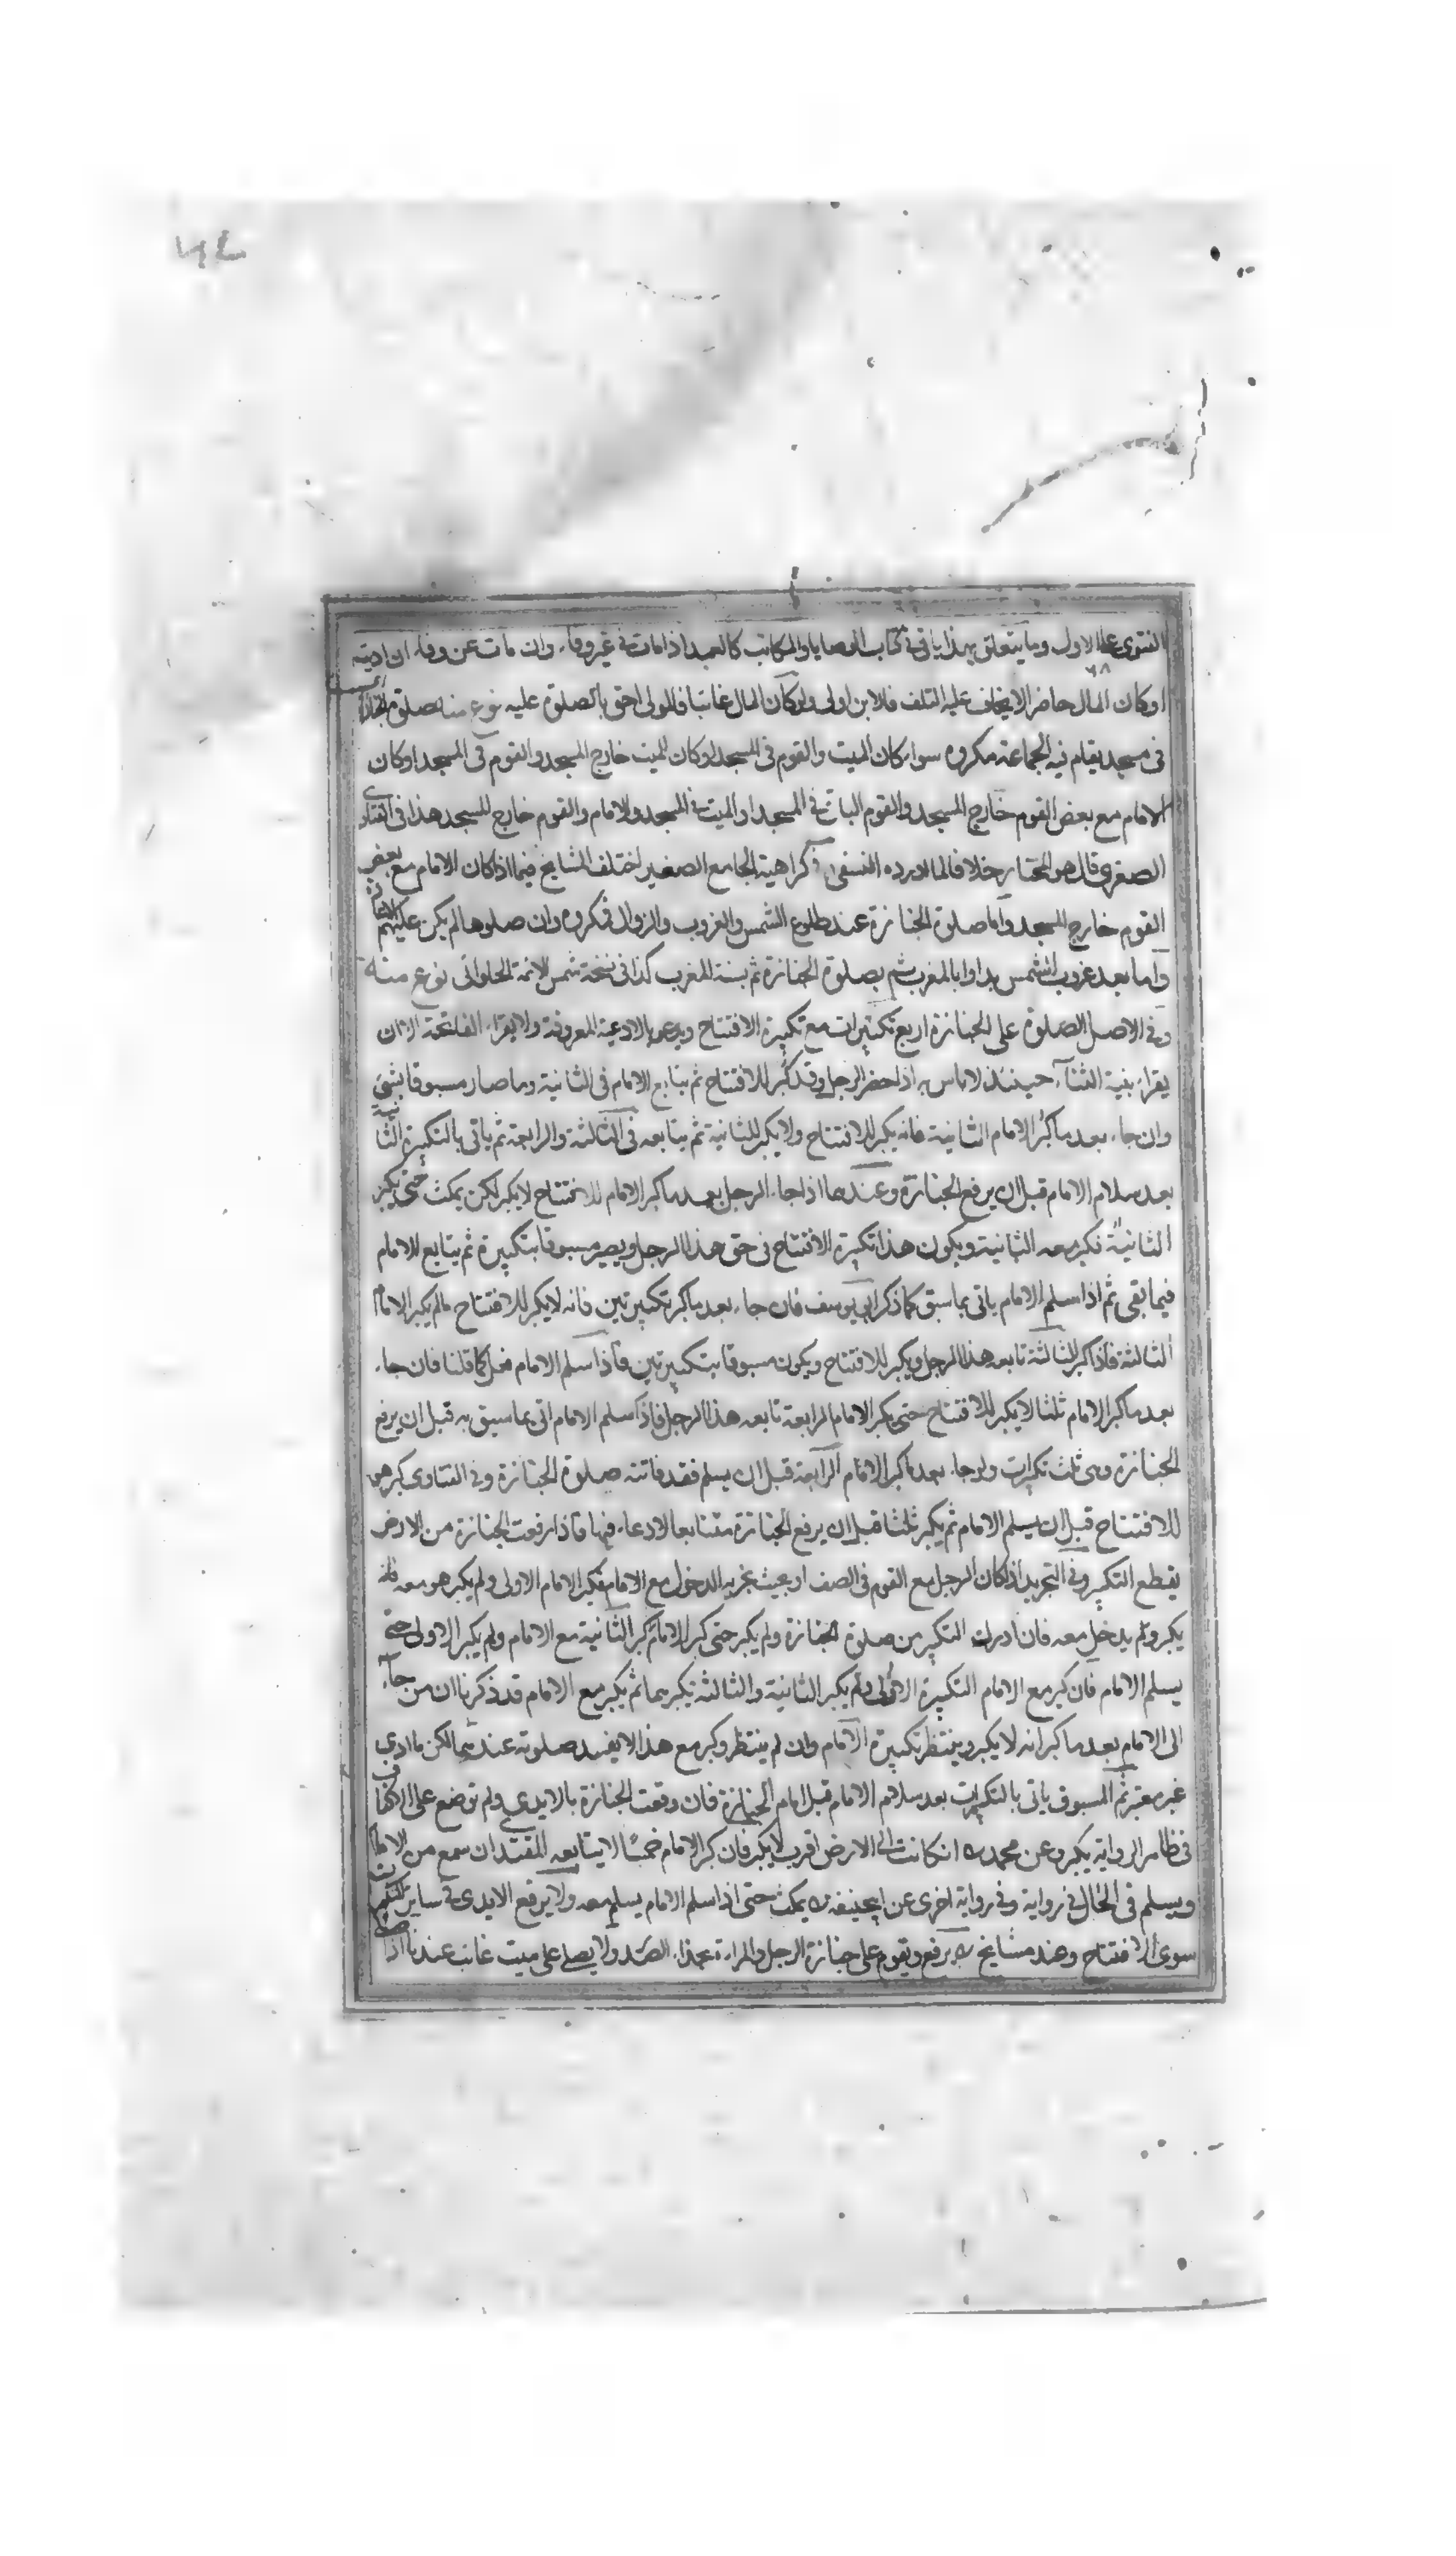 الفتوى على الاول وما يتعلق بهذا ياتى فى كتاب الوصايا والمكاتب كالعبد اذا مات فى غير وفاء وان مات عن وفاء ان اديت
او كان المال حاضرا لا يخاف عليه التلف فلابن اولى ولو كان المال غائبا فالمولى احق بالصلوة عليه نوع منه صلوة الجنازة
فى مسجد يقام فيه الجماعة مكروه سواء كان الميت والقوم فى المسجد او كان الميت خارج المسجد والقوم فى المسجد او كان
الامام مع بعض القوم خارج المسجد والقوم الباقى فى المسجد او الميت فى المسجد والامام والقوم خارج المسجد هذا فى الفتاوى
الصغرى قال هو المختار خلافا لما اورده النسفى فى كراهية الجامع الصغير اختلف المشايخ فيما اذا كان الامام مع بعض
القوم خارج المسجد واما صلوة الجنازة عند طلوع الشمس والغروب والزوال فمكروه وان صلوها لم يكن عليهم الاعادة
واما بعد غروب الشمس بداوا بالمغرب ثم بصلوة الجنازة ثم بسنة المغرب كذا فى نسخة شمس الائمة الحلوانى نوع منه
وفى الاصل الصلوة على الجنازة اربع تكبيرات مع تكبيرة الافتتاح ويدعو بالادعية المعروفة ولا يقراء الفاتحة الا ان
يقراء بنية الثناء حينئذ لا باس به اذا حضر الرجل وقد كبر للافتتاح ثم يتابع الامام فى الثانية وما صار مسبوقا بشئ
وان جاء بعد ما كبر الامام الثانية فانه يكبر للافتتاح ولا يكبر للثانية ثم يتابعه فى الثالثة والرابعة ثم ياتى بالتكبيرة الثانية
بعد سلام الامام قبل ان يرفع الجنازة وعندهما اذا جاء الرجل بعد ما كبر الامام للافتتاح لا يكبر لكن يمكث حتى يكبر
الثانية فكبر معه الثانية ويكون هذا تكبيرة الافتتاح فى حق هذا الرجل ويصير مسبوقا بتكبيرة ثم يتابع للامام
فيما بقى ثم اذا سلم الامام ياتى بما سبق كما ذكر ابى يوسف فان جاء بعد ما كبر تكبيرتين فانه لا يكبر للافتتاح مالم يكبر الامام
الثالثة فاذا كبر الثالثة تابعه هذا الرجل ويكبر للافتتاح ويكون مسبوقا بتكبيرتين فاذا سلم الامام فعل كما قلنا فان جاء
بعد ما كبر الامام ثلثا لا يكبر للافتتاح حتى يكبر الامام الرابعة تابعه هذا الرجل فاذا سلم الامام اتى بما سبق به قبل ان يرفع
الجنازة وهى ثلث تكبيرات ولو جاء بعد ما كبر الامام الرابعة قبل ان يسلم فقد فاتته صلوة الجنازة وفى الفتاوى كبر هو
للافتتاح قبل ان يسلم الامام ثم يكبر ثلثا قبل ان يرفع الجنازة متتابعا لا دعاء فيها فاذا رفعت الجنازة من الارض
يقطع التكبير وفى التجريد اذا كان الرجل مع القوم فى الصف او بحيث يجزيه الدخول مع الامام فكبر الامام الاولى ولم يكبر هو معه فانه
يكبر ولم يدخل معه فان ادرك التكبير من صلوة الجنازة ولم يكبر حتى كبر الامام كبر الثانية مع الامام ولم يكبر الاولى حتى
يسلم الامام فان كبر مع الامام التكبيرة الاولى ولم يكبر الثانية والثالثة يكبرهما ثم يكبر مع الامام قد ذكرنا ان من جاء
الى الامام بعد ما كبر انه لا يكبر وينتظر تكبيرة الامام وان لم ينتظر وكبر مع هذا لا يفسد صلوته عندهما لكن ما ادى
غير معتبر ثم المسبوق ياتى بالتكبيرات بعد سلام الامام قبل امام الجنازة فان رفعت الجنازة بالايدى ولم توضع على الاكتاف
فى ظاهر الرواية يكبر وعن محمد رہ ان كانت الى الارض اقرب لا يكبر فان كبر الامام خمسا لا يتابعه المقتد ان سمع من الامام
ويسلم فى الحال فى رواية وفى رواية اخرى عن ابيحنيفه رہ يمكث حتى اذا سلم الامام يسلم معه ولا يرفع الايدى فى ساير التكبيرات
سوى الافتتاح وعند مشايخ رہ يرفع ويقوم على جنازة الرجل والمراءة بحذاء الصدر ولا يصلى على ميت غائب عندنا اذا